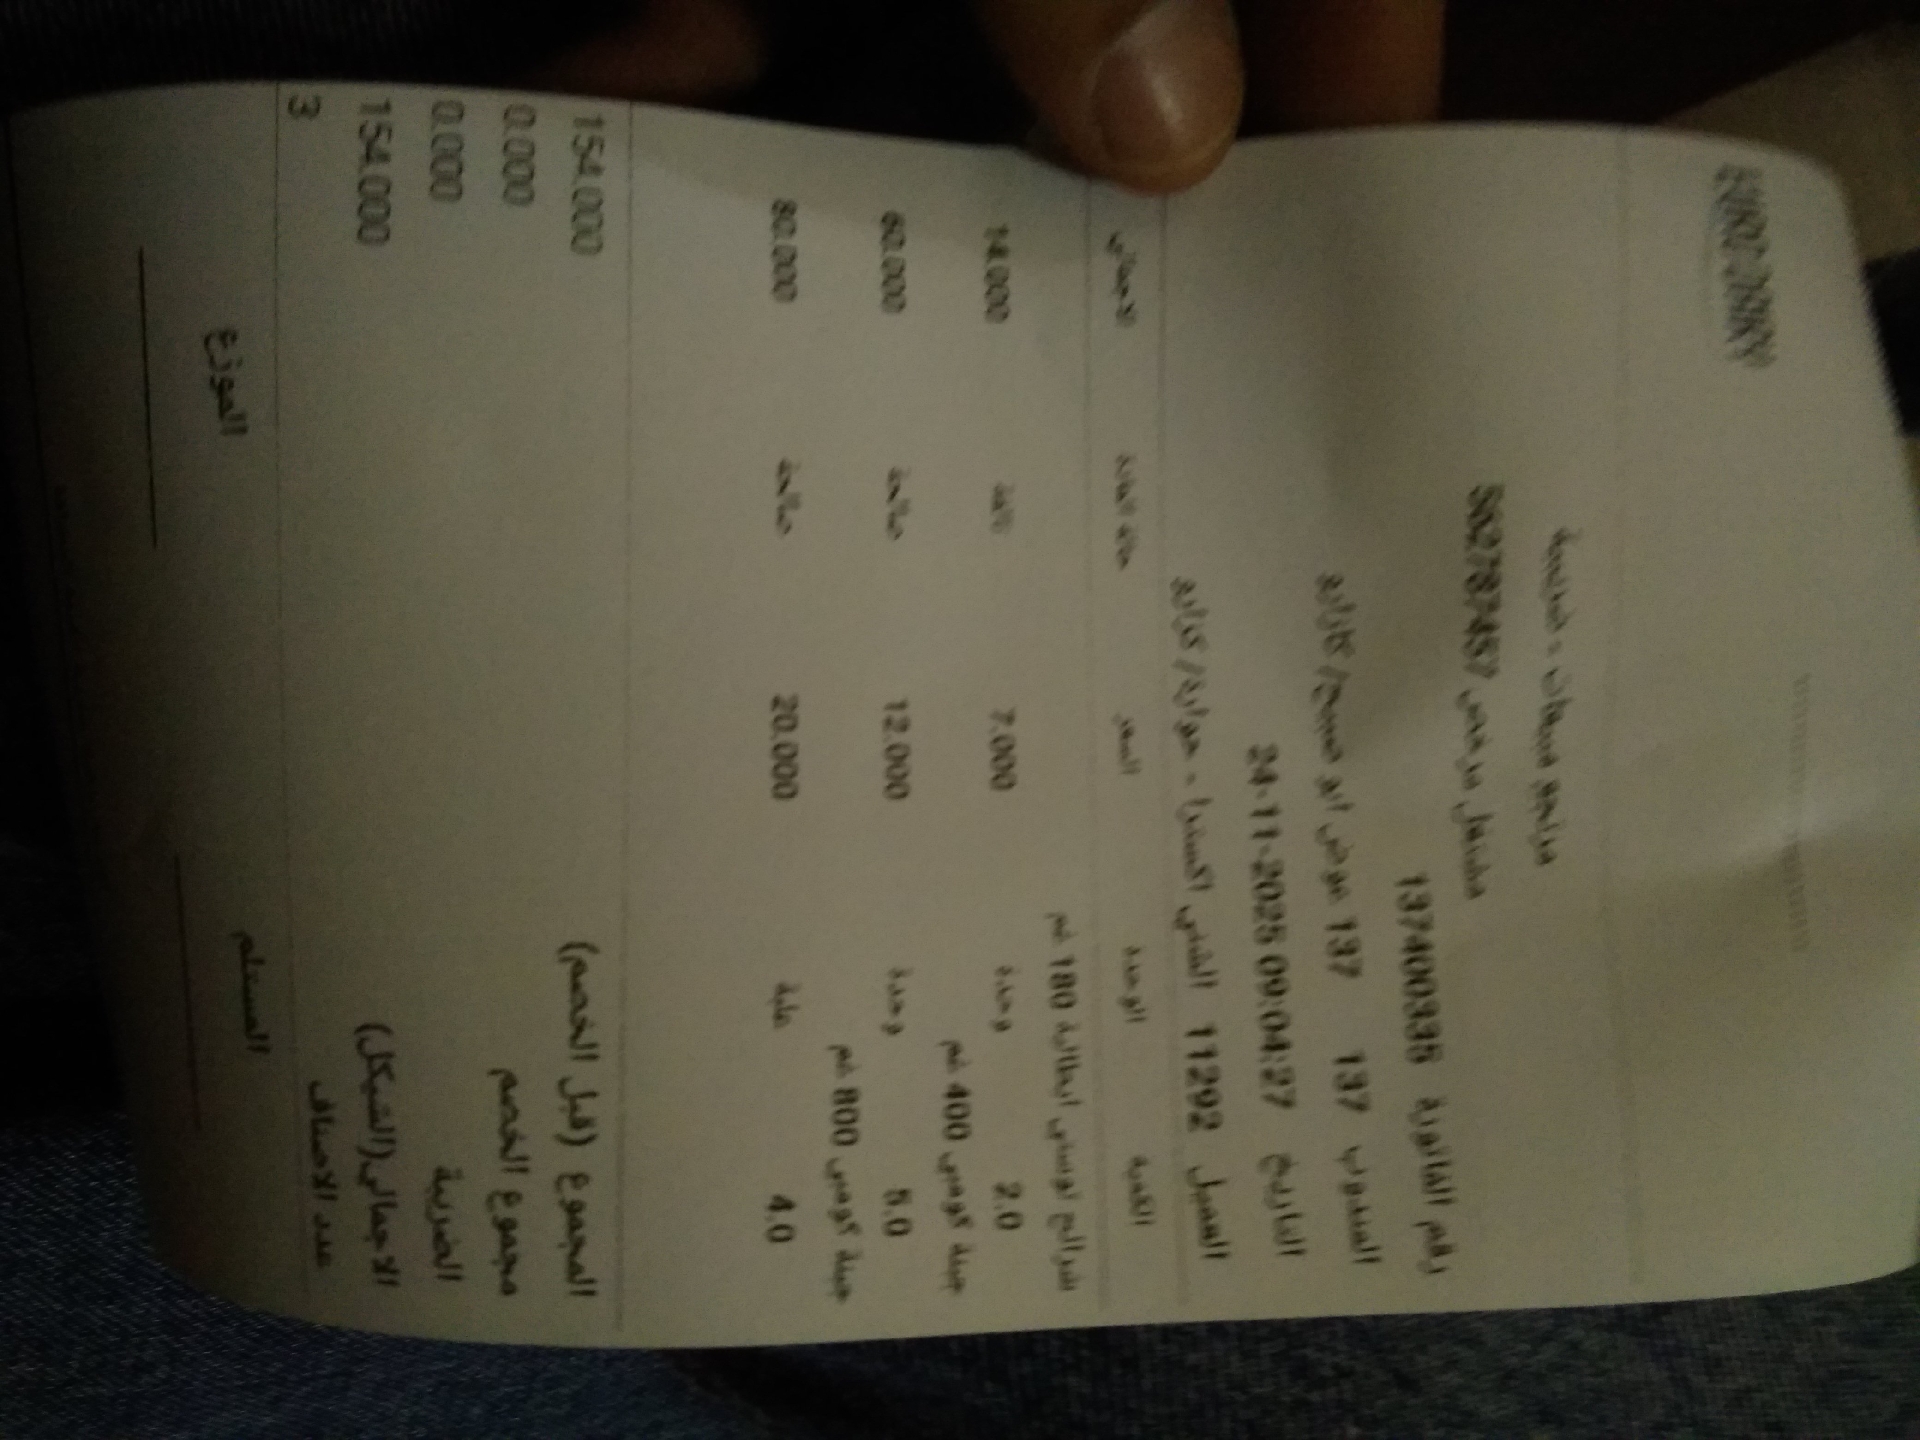 مرتجع مبيعات - ضريبية
مشتغل مرخص 562787457
رقم الفاتورة 1374000335
المندوب 137 137 عوض ابو صبيح/كازابو
التاريخ 24-11-2025 09:04:27
العميل 11292 الشني اكسترا - حوارة/
الكمية الوحدة السعر حالة المادة الاجمالي
شرائح توستي ايطالية 180 غم
2.0 وحدة 7.000 تالفة 14.000
جبنة كومبي 400 غم
5.0 وحدة 12.000 صالحة 60.000
جبنة كومبي 800 غم
4.0 علبة 20.000 صالحة 80.000
المجموع (قبل الخصم) 154.000
مجموع الخصم 0.000
الضريبة 0.000
الاجمالي(الشيكل) 154.000
عدد الاصناف 3
المستلم الموزع